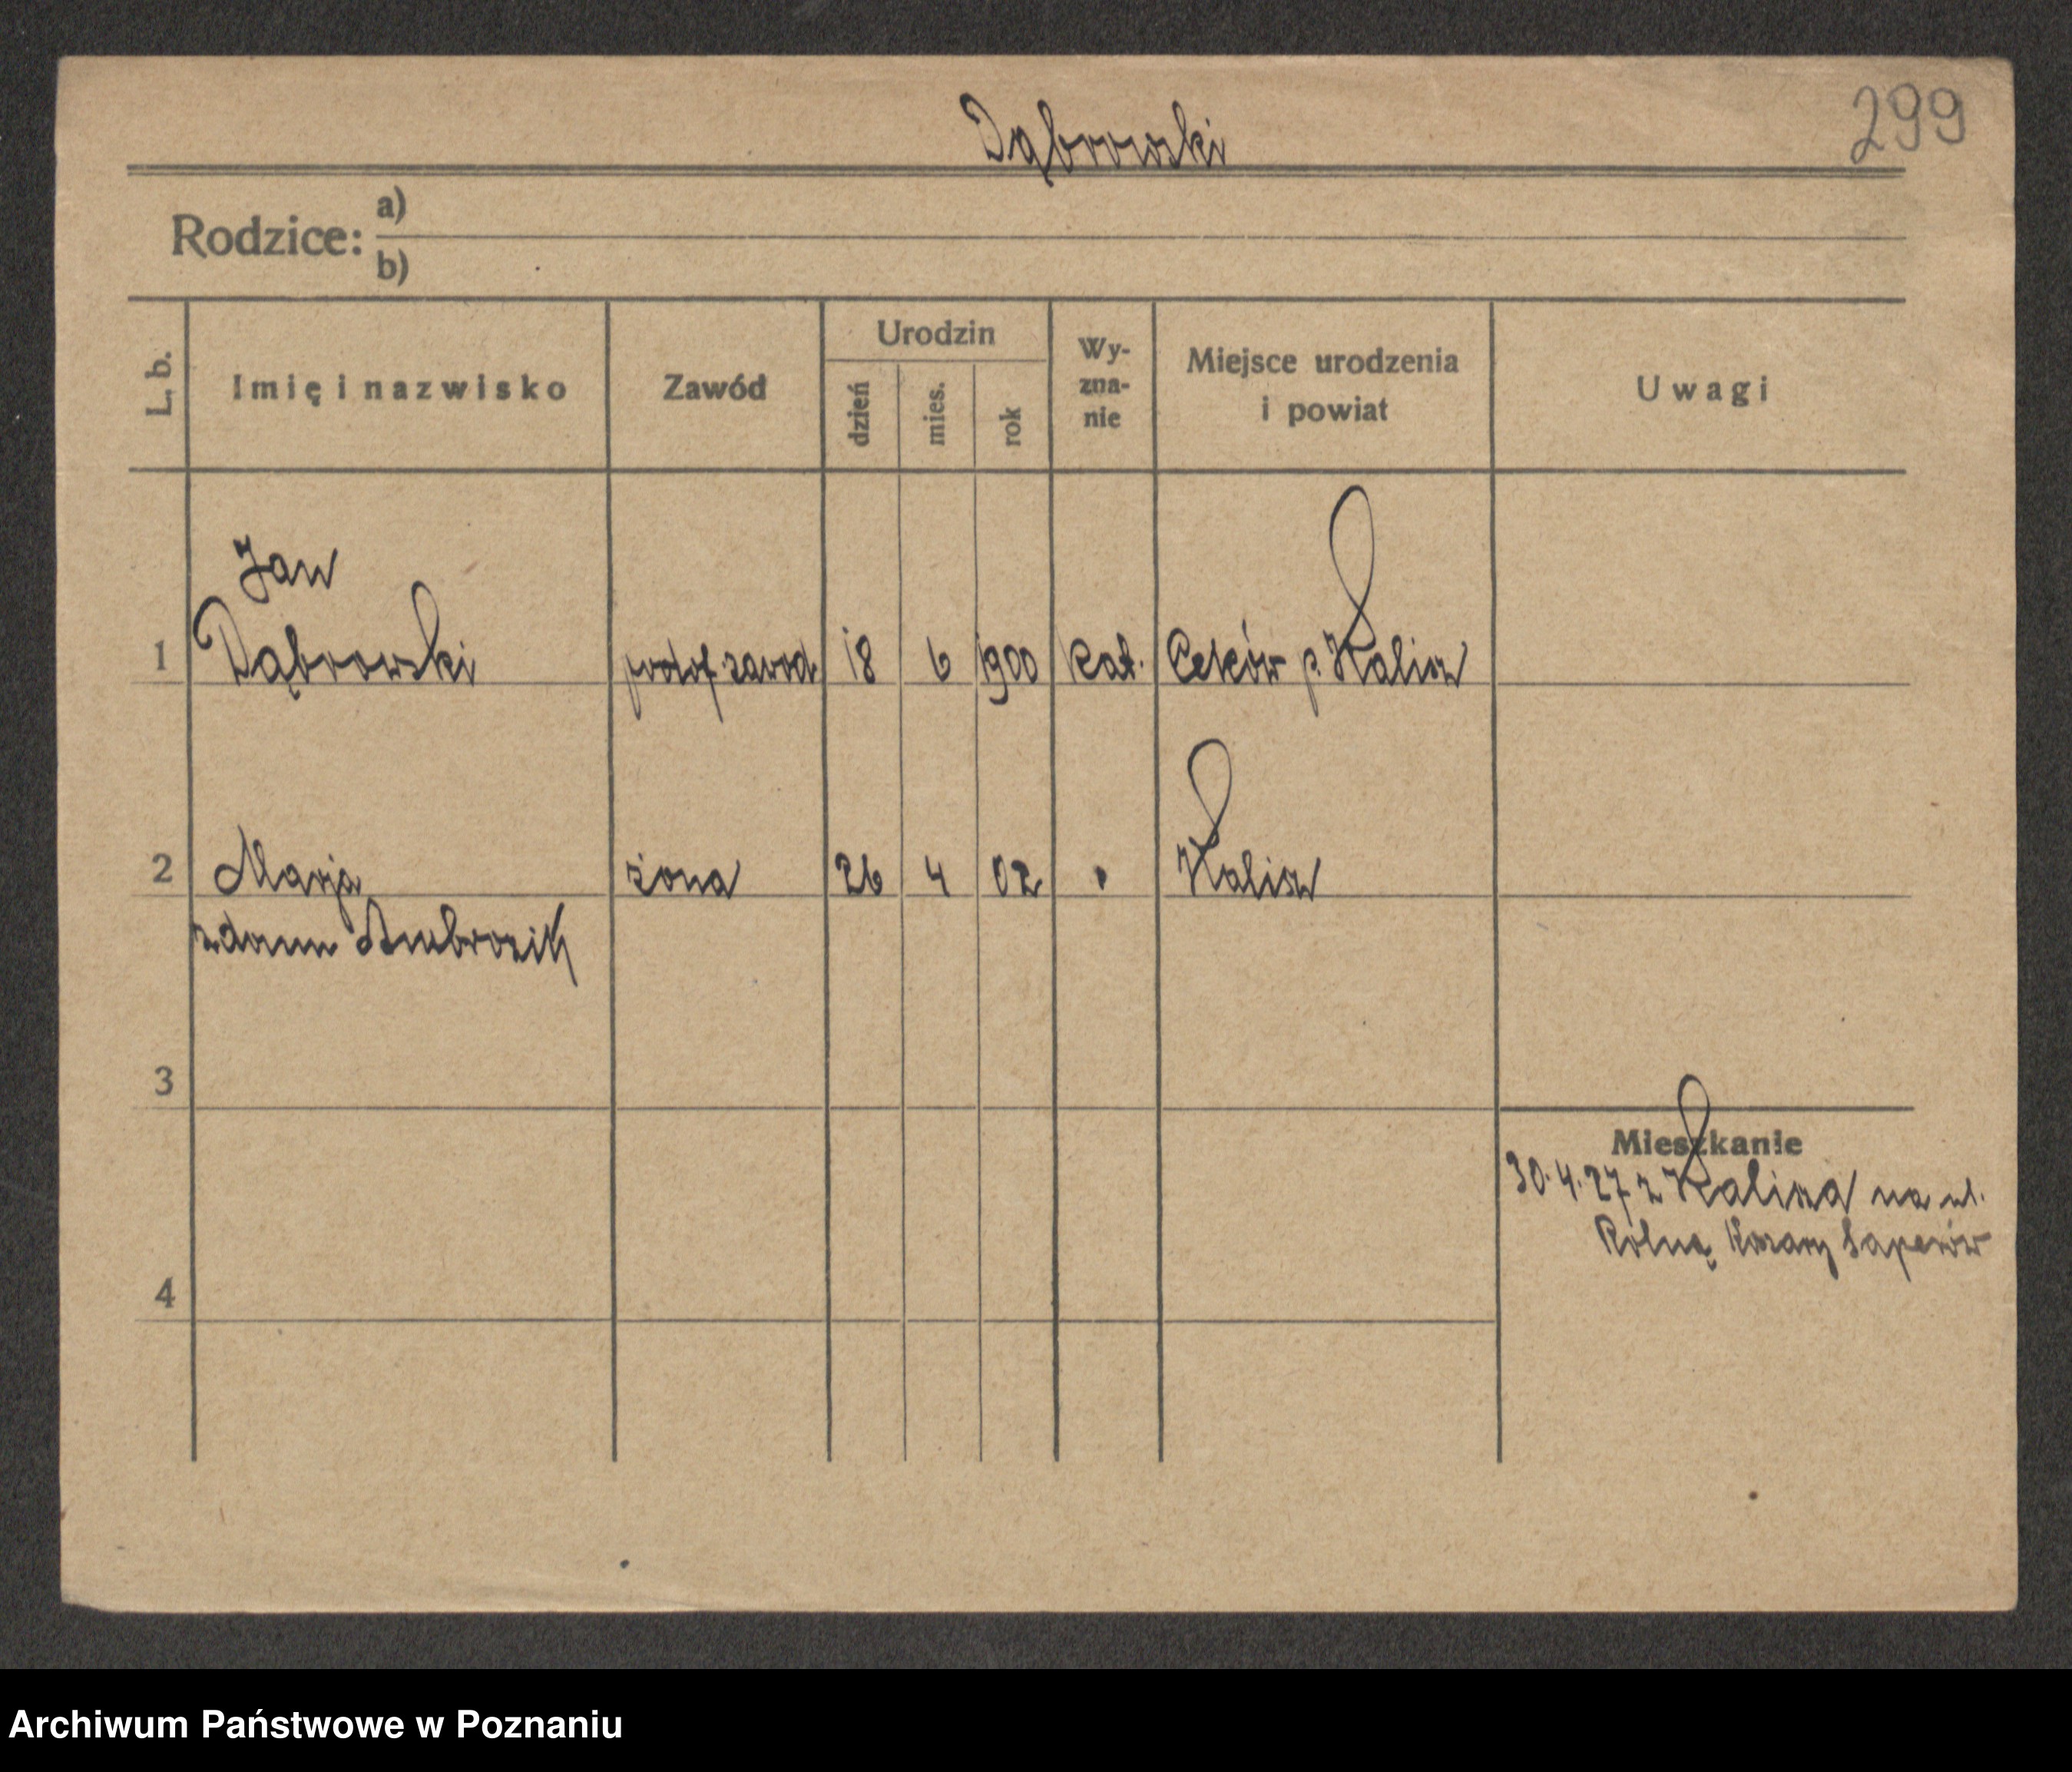 299
Dąbrowski
Rodzice: a)
b)
L. b.
Imię i nazwisko
Zawód
Urodzin
dzień
mies.
rok
Wy-
zna-
nie
Miejsce urodzenia
i powiat
Uwagi
Jan
1 Dąbrowski podof. zawod. 18 6 1900 kat. Ceków p. Kalisz
2 Marja żona 26 4 02 " Kalisz
z domu Ambrozik
3
Mieszkanie
30.4.27 z Kalisza na ul.
Rolną Koszary Saperów
4
Archiwum Państwowe w Poznaniu